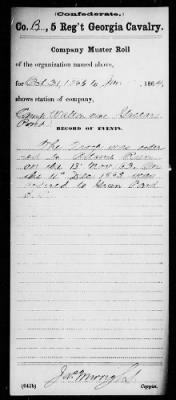 (Confederate.)
Co. B, 5 Reg't Georgia Cavalry.
Company Muster Roll
of the organization named above,
for Oct 31, 1863 to Jan , 1864,
shows station of company,
Camp Walton near Green
Pond
RECORD OF EVENTS.
The Troop was order
ed to River
on the 13" Nov 63. On
the 11" Dec 1863 was
to Green Pond
S.C.
(641b)
Copyist.